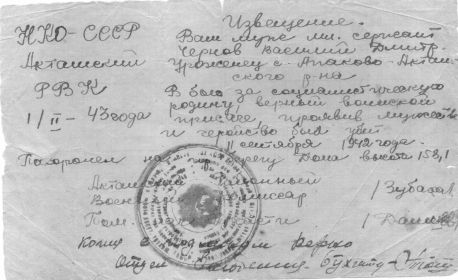 НКО-СССР
Акташский
РВК
1/II-43 года
Извещение.
Ваш муж мл. сержант
Чернов Василий Дмитр.
Уроженец с. Апаково Акташ-
ского р-на
В бою за социалистическую
родину, верный воинской
присяге, проявив мужество
и геройство был убит
11 сентября 1942 года.
Похоронен на берегу Дона высота 158,1
Акташский Районный
Военный Комиссар /Зубатов/
Пом. части /Данилов/
Копия с подлинным верно